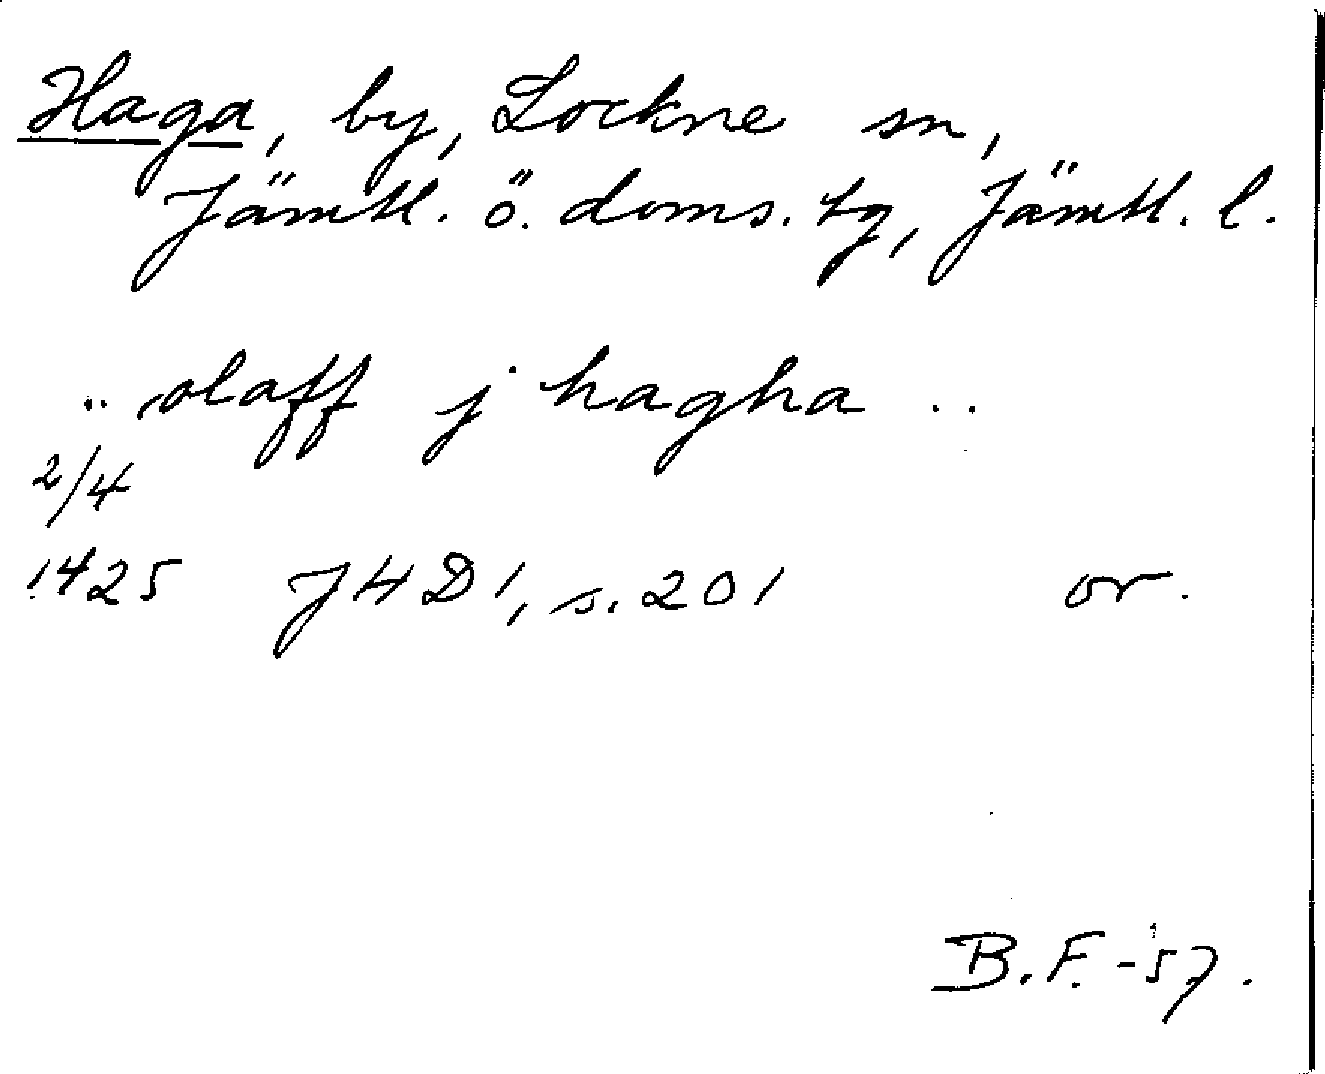 Haga, by, Lockne sn,
Jämtl. ö. doms. tg, Jämtl. l.
.. olaff j hagha ..
2/4
1425 JHD 1, s. 201 or.
B.F. -57.